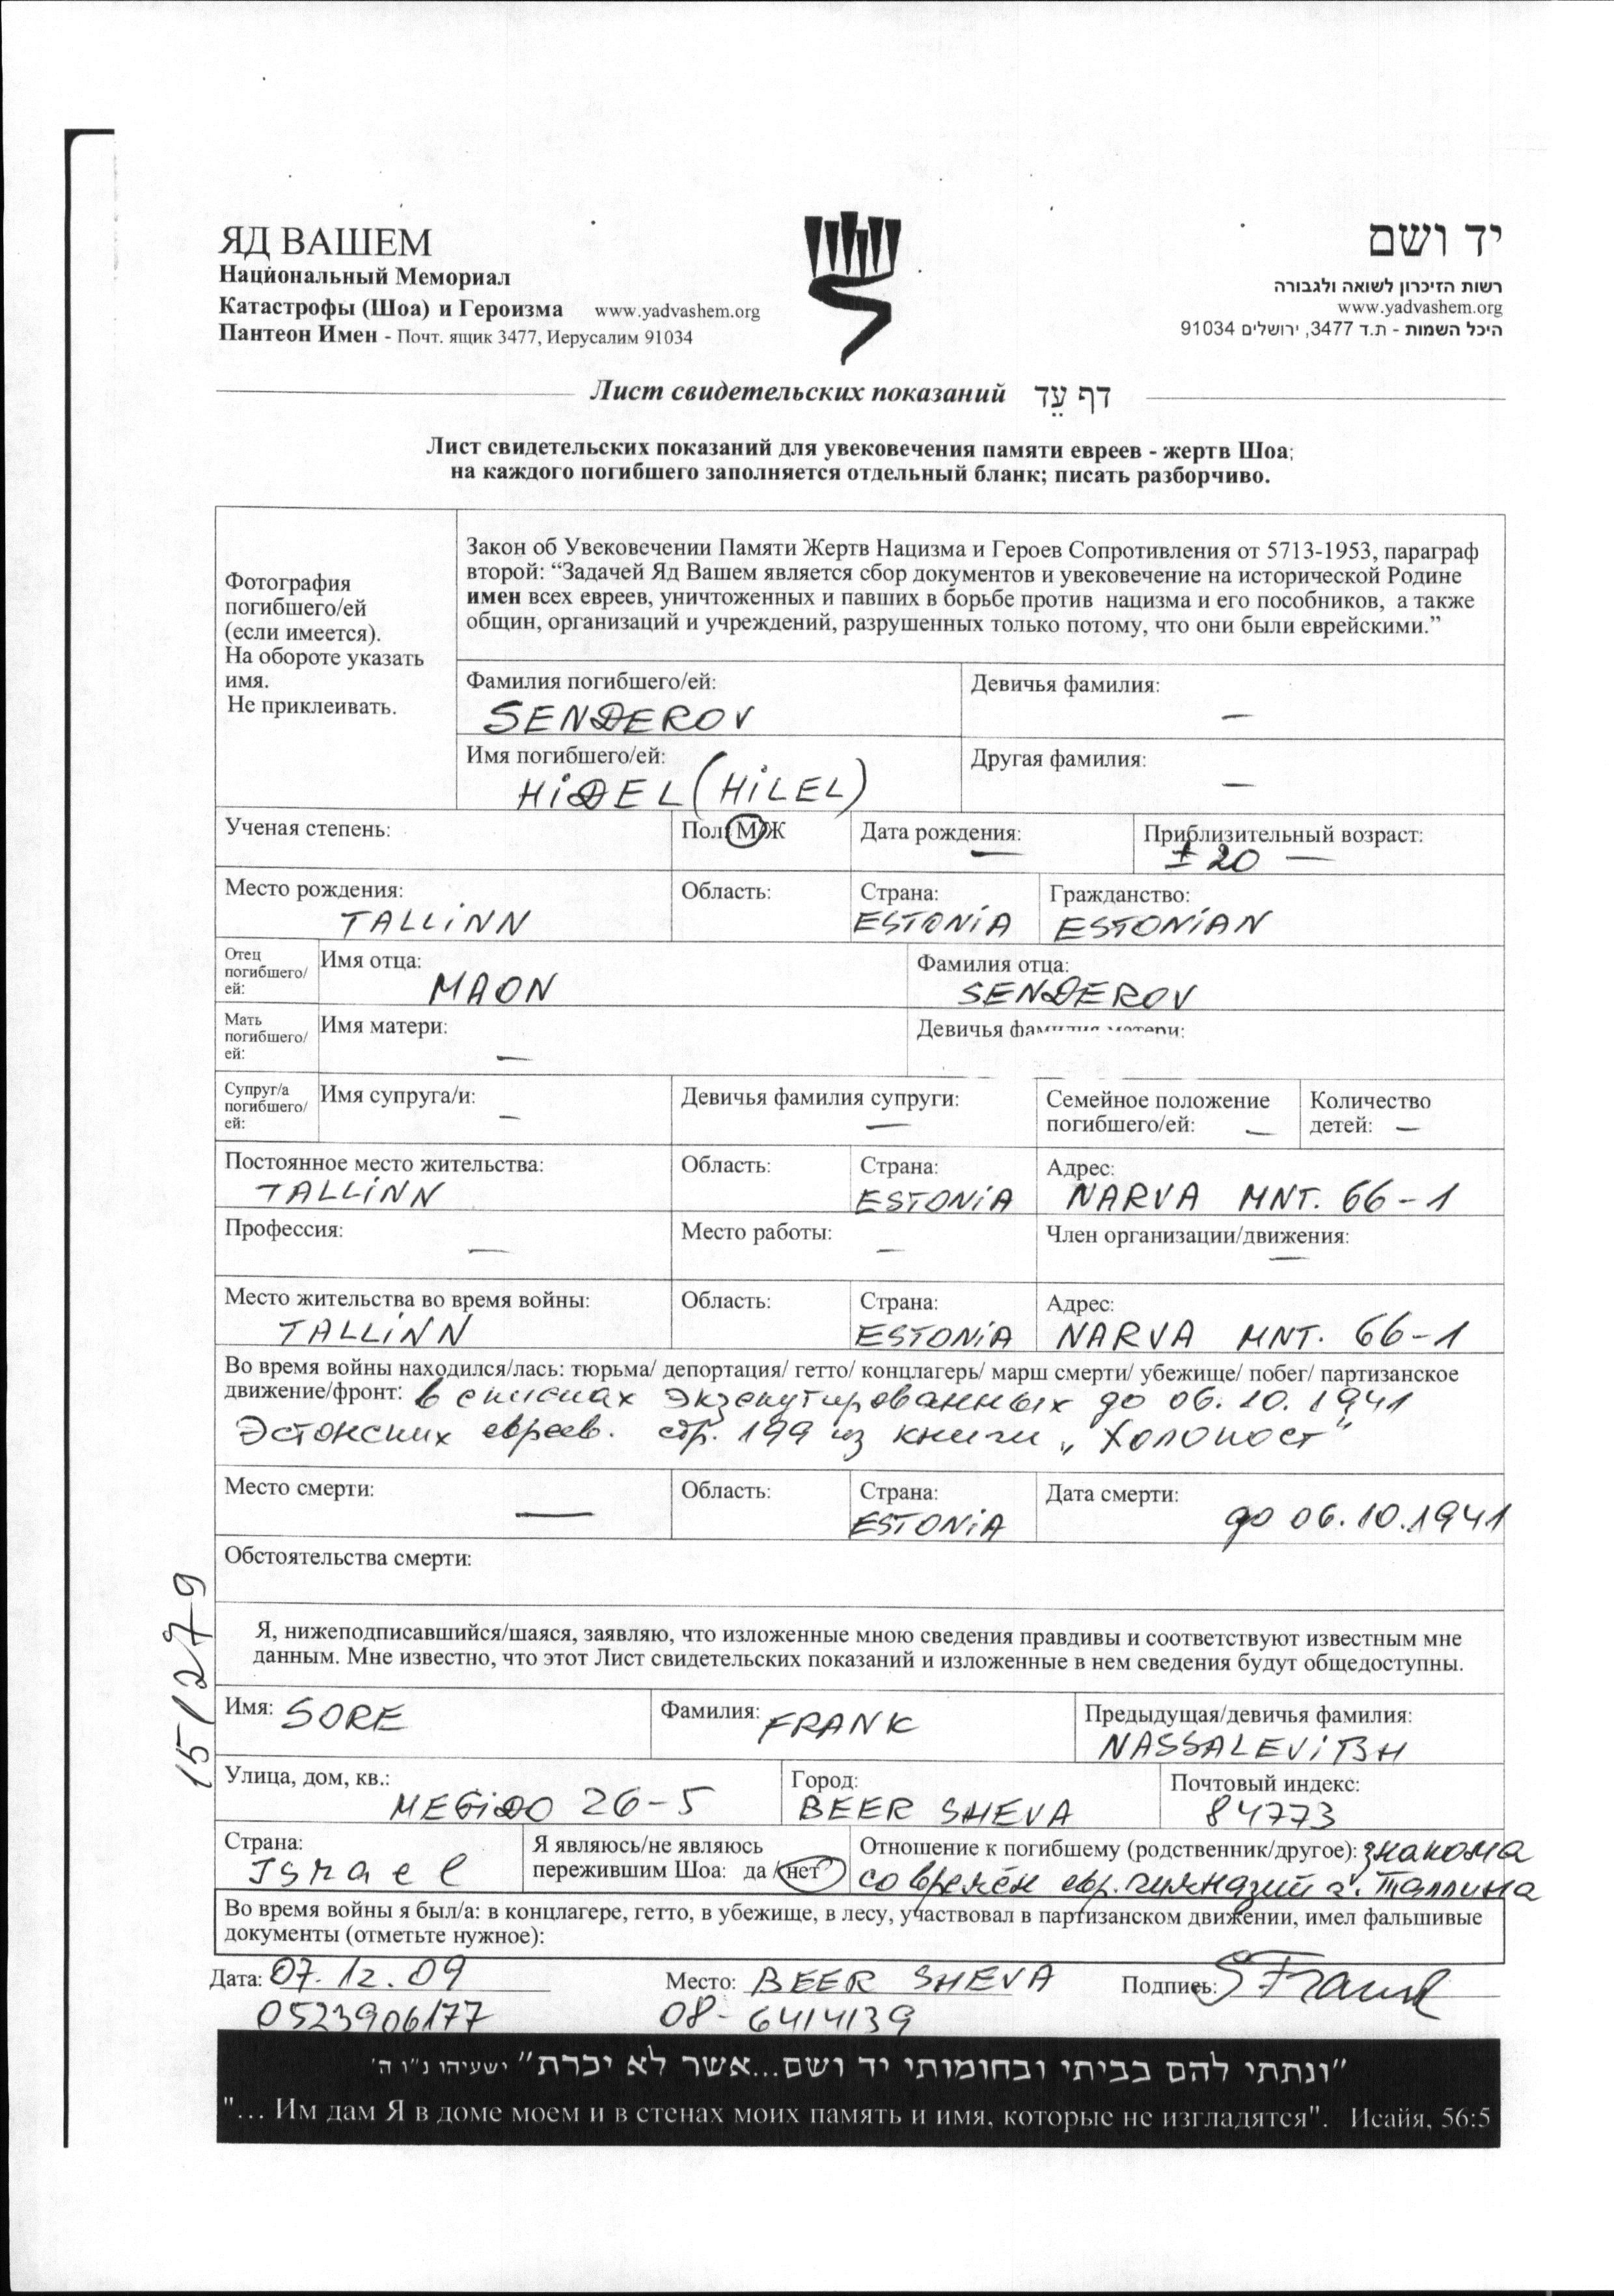 ЯД ВАШЕМ
Национальный Мемориал
Катастрофы (Шоа) и Героизма www.yadvashem.org
Пантеон Имен - Почт. ящик 3477, Иерусалим 91034
יד ושם
רשות הזיכרון לשואה ולגבורה
www.yadvashem.org
היכל השמות - ת.ד 3477, ירושלים 91034
Лист свидетельских показаний דף עֵד
Лист свидетельских показаний для увековечения памяти евреев - жертв Шоа;
на каждого погибшего заполняется отдельный бланк; писать разборчиво.
Фотография
погибшего/ей
(если имеется).
На обороте указать
имя.
Не приклеивать.
Закон об Увековечении Памяти Жертв Нацизма и Героев Сопротивления от 5713-1953, параграф
второй: “Задачей Яд Вашем является сбор документов и увековечение на исторической Родине
имен всех евреев, уничтоженных и павших в борьбе против нацизма и его пособников, а также
общин, организаций и учреждений, разрушенных только потому, что они были еврейскими.”
Фамилия погибшего/ей: Девичья фамилия:
SENDEROV —
Имя погибшего/ей: Другая фамилия:
HiDEL (HiLEL) —
Ученая степень: Пол: М/Ж Дата рождения: — Приблизительный возраст:
± 20 —
Место рождения: Область: Страна: Гражданство:
TALLiNN ESTONiA ESTONiAN
Отец
погибшего/
ей:
Имя отца: Фамилия отца:
MAON SENDEROV
Мать
погибшего/
ей:
Имя матери: Девичья фамилия матери:
—
Супруг/а
погибшего/
ей:
Имя супруга/и: — Девичья фамилия супруги: —
Семейное положение
погибшего/ей: —
Количество
детей: —
Постоянное место жительства: Область: Страна: Адрес:
TALLiNN ESTONiA NARVA MNT. 66-1
Профессия: — Место работы: — Член организации/движения: —
Место жительства во время войны: Область: Страна: Адрес:
TALLiNN ESTONiA NARVA MNT. 66-1
Во время войны находился/лась: тюрьма/ депортация/ гетто/ концлагерь/ марш смерти/ убежище/ побег/ партизанское
движение/фронт: в списках экзекутированных до 06.10.1941
Эстонских евреев. стр. 199 из книги „Холокост"
Место смерти: — Область: Страна: Дата смерти:
ESTONiA до 06.10.1941
Обстоятельства смерти:
Я, нижеподписавшийся/шаяся, заявляю, что изложенные мною сведения правдивы и соответствуют известным мне
данным. Мне известно, что этот Лист свидетельских показаний и изложенные в нем сведения будут общедоступны.
15/279
Имя: SORE Фамилия: FRANK Предыдущая/девичья фамилия:
NASSALEViTSH
Улица, дом, кв.: Город: Почтовый индекс:
MEGiDO 26-5 BEER SHEVA 84773
Страна:
Israel
Я являюсь/не являюсь
пережившим Шоа: да / нет
Отношение к погибшему (родственник/другое): знакома
со времён евр. гимназий г. Таллина
Во время войны я был/а: в концлагере, гетто, в убежище, в лесу, участвовал в партизанском движении, имел фальшивые
документы (отметьте нужное):
Дата: 07.12.09 Место: BEER SHEVA Подпись: S Frank
0523906177 08-6414139
"ונתתי להם בביתי ובחומותי יד ושם...אשר לא יכרת" ישעיהו נ"ו ה'
"... Им дам Я в доме моем и в стенах моих память и имя, которые не изгладятся". Исайя, 56:5